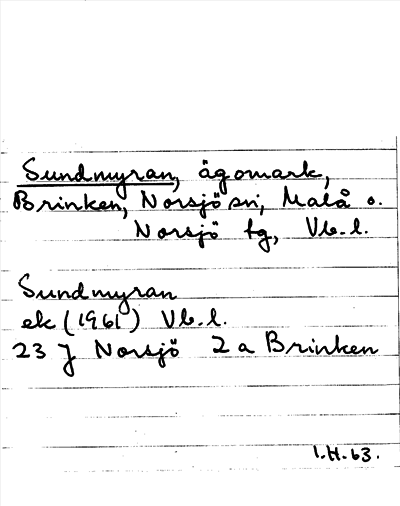 Sundmyran, ägomark,
Brinken, Norsjö sn, Malå o.
Norsjö tg, Vb.l.
Sundmyran
ek (1961) Vb.l.
23 J Norsjö 2 a Brinken
I.H.63.